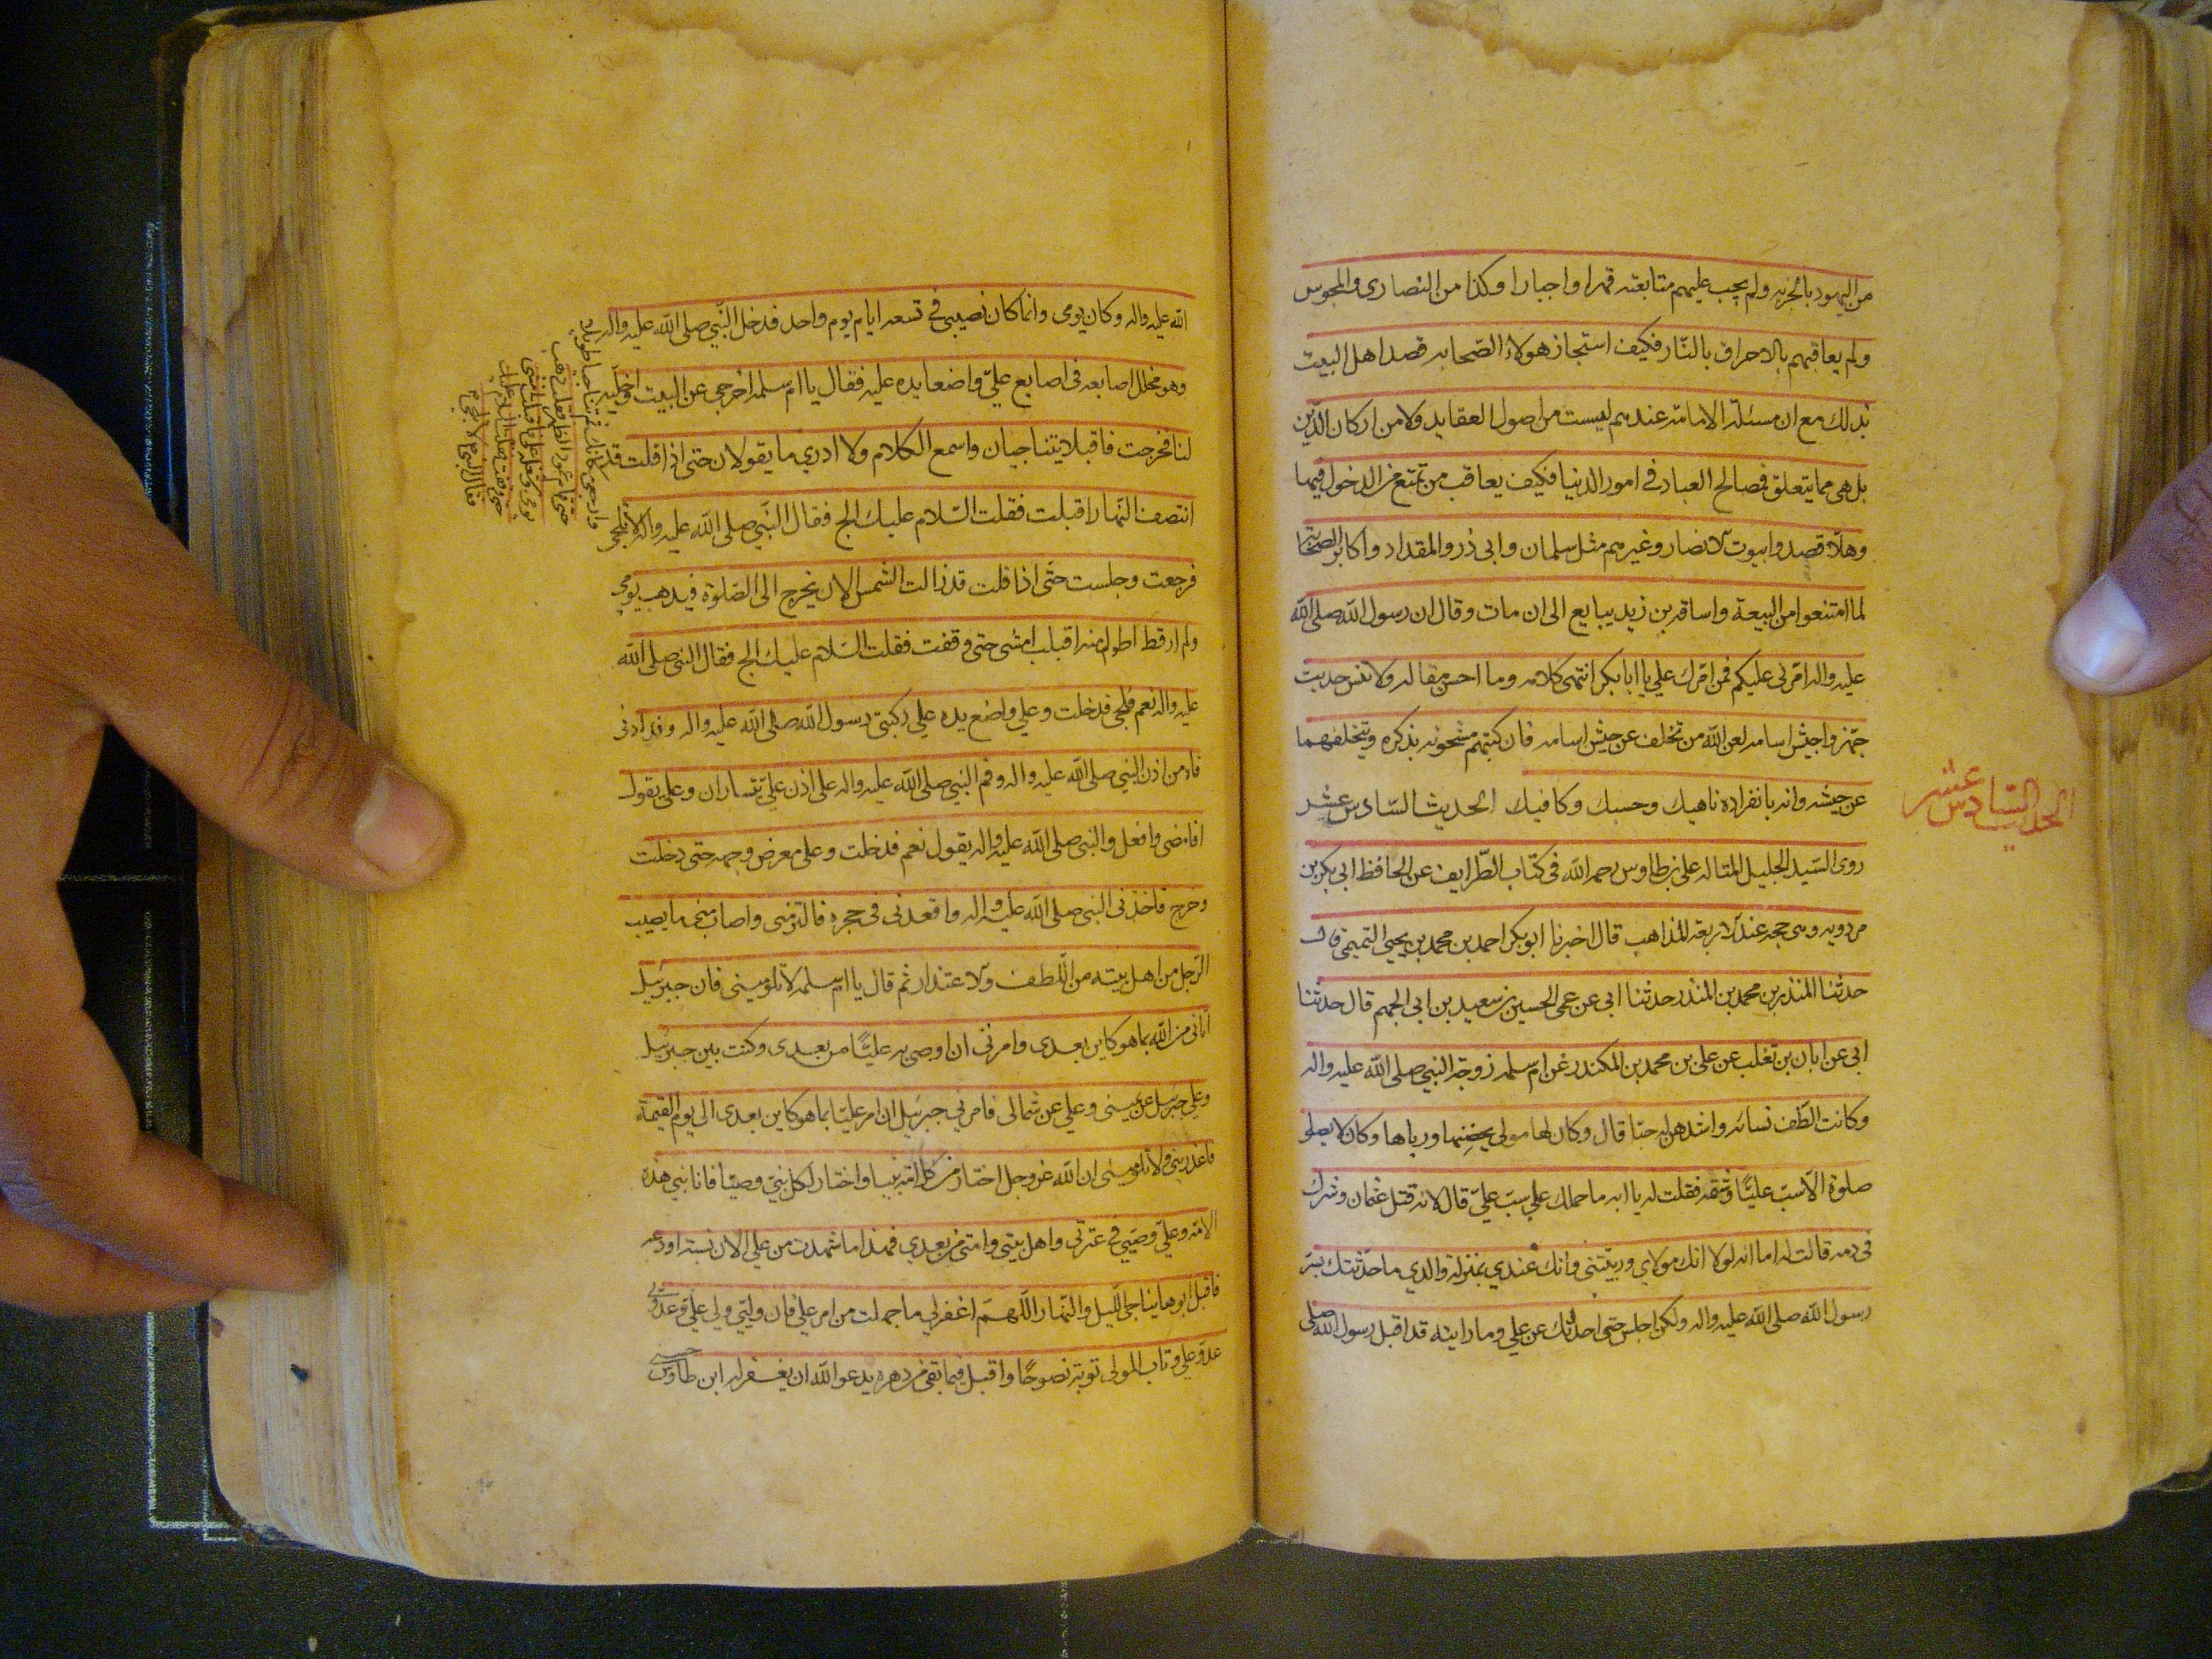 من اليهود بالجزيه ولم يجب عليهم متابعته قهرا واجبارا وكذا من النصارى والمجوس
ولم يعاقبهم بالاحراق بالنار فكيف استجاز هولاء الصحابه قصد اهل البيت
بذلك مع ان مسئلة الامامة عندهم ليست من اصول العقايد ولا من اركان الدين
بل هي مما يتعلق فصالح العباد في امور الدنيا فكيف يعاقب من تمتع من الدخول فيها
وهلا قصدوا بيوت الانصار وغيرهم مثل سلمان وابي ذر والمقداد واكابر الصحابة
لما امتنعوا من البيعة واسامة بن زيد يبايع الى ان مات وقال ان رسول الله صلى الله
عليه واله امرني عليكم فمن امرك علي يا ابابكر انتهى كلامه وما احسن مقاله ولا تنس حديث
جهزوا جيش اسامه لعن الله من تخلف عن جيش اسامه فان كتبهم مشحونه بذكره وبتخلفهما
عن جيشه وانه بانفراده ناهيك وحسبك وكافيك الحديث السادس عشر
الحديث السادس عشر
روى السيد الجليل المتاله علي بن طاوس رحمه الله في كتاب الطرايف عن الحافظ ابي بكر بن
مردويه وهي حجه عند الاربعة المذاهب قال اخبرنا ابوبكر احمد بن محمد بن يحيى التميمي قال
حدثنا المنذر بن محمد بن المنذر حدثنا ابي عن عمي الحسين بن سعيد بن ابي الجهم قال حدثنا
ابي عن ابان بن تغلب عن علي بن محمد بن المكندر عن ام سلمه زوجة النبي صلى الله عليه واله
وكانت الطف نسائه واشدهن له حبا قال وكان لها مولى يحضنها ورباها وكان لا يصلي
صلوة الا سب عليا وشتمه فقلت له يا ابه ما حملك على سب علي قال لانه قتل عثمان وشرك
في دمه قالت له اما انه لولا انك مولاي وربيتني وانك عندي بمنزلة والدي ما حدثتك بسر
رسول الله صلى الله عليه واله ولكن اجلس حتى احدثك عن علي وما رايته قد اقبل رسول الله صلى
الله عليه واله وكان يومى وانما كان نصيبي في تسعه ايام يوم واحد فدخل النبي صلى الله عليه واله
وهو مخلل اصابعه في اصابع علي واضعا يده عليه فقال يا ام سلمه اخرجي عن البيت اخليه
لنا فخرجت فاقبلا يتناجيان واسمع الكلام ولا ادري ما يقولان حتى اذا قلت قد
انتصف النهار اقبلت فقلت السلام عليك الج فقال النبي صلى الله عليه واله لا تلجي
فرجعت وجلست حتى اذا قلت قد زالت الشمس الان يخرج الى الصلوة فيذهب يومي
ولم ار قط اطول منه اقبلت امشي حتى وقفت فقلت السلام عليك الج فقال النبي صلى الله
عليه واله نعم فلجي فدخلت وعلي واضع يده على ركبتي رسول الله صلى الله عليه واله وقد ادنى
فاه من اذن النبي صلى الله عليه واله وفم النبي صلى الله عليه واله على اذن علي يتساران وعلي يقول
افامضي وافعل والنبي صلى الله عليه واله يقول نعم فدخلت وعلي معرض وجهه حتى دخلت
وخرج فاخذني النبي صلى الله عليه واله واقعدني في حجره فالتزمني واصاب مني ما يصيب
الرجل من اهل بيته من اللطف والاعتذار ثم قال يا ام سلمه لا تلوميني فان جبرئيل
اتاني من الله بما هو كاين بعدي وامرني ان اوصي به عليا من بعدي وكنت بين جبرئيل
وعلي جبرئيل عن يميني وعلي عن شمالي فامرني جبرئيل ان امر عليا بما هو كاين بعدي الى يوم القيمة
فاعذريني ولا تلوميني ان الله عز وجل اختار من كل امة نبيا واختار لكل نبي وصيا فانا نبي هذه
الامة وعلي وصيي في عترتي واهل بيتي وامتي من بعدي فهذا ما شهدت من علي الان فسبه اودعه
فاقبل ابوها يناجي الليل والنهار اللهم اغفر لي ما جهلت من امر علي فان وليي ولي علي وعدوي
عدو علي وتاب المولى توبة نصوحا واقبل فيما بقي من دهره يدعو الله ان يغفر له ابن طاوس